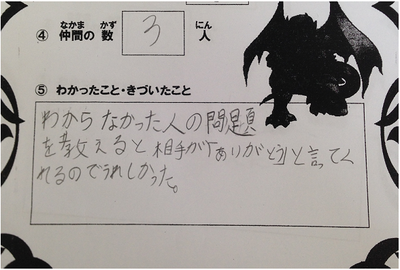 ④ 仲間の数 3 人
⑤ わかったこと・きづいたこと
わからなかった人の問題
を教えると相手が「ありがとう」と言ってく
れるのでうれしかった。